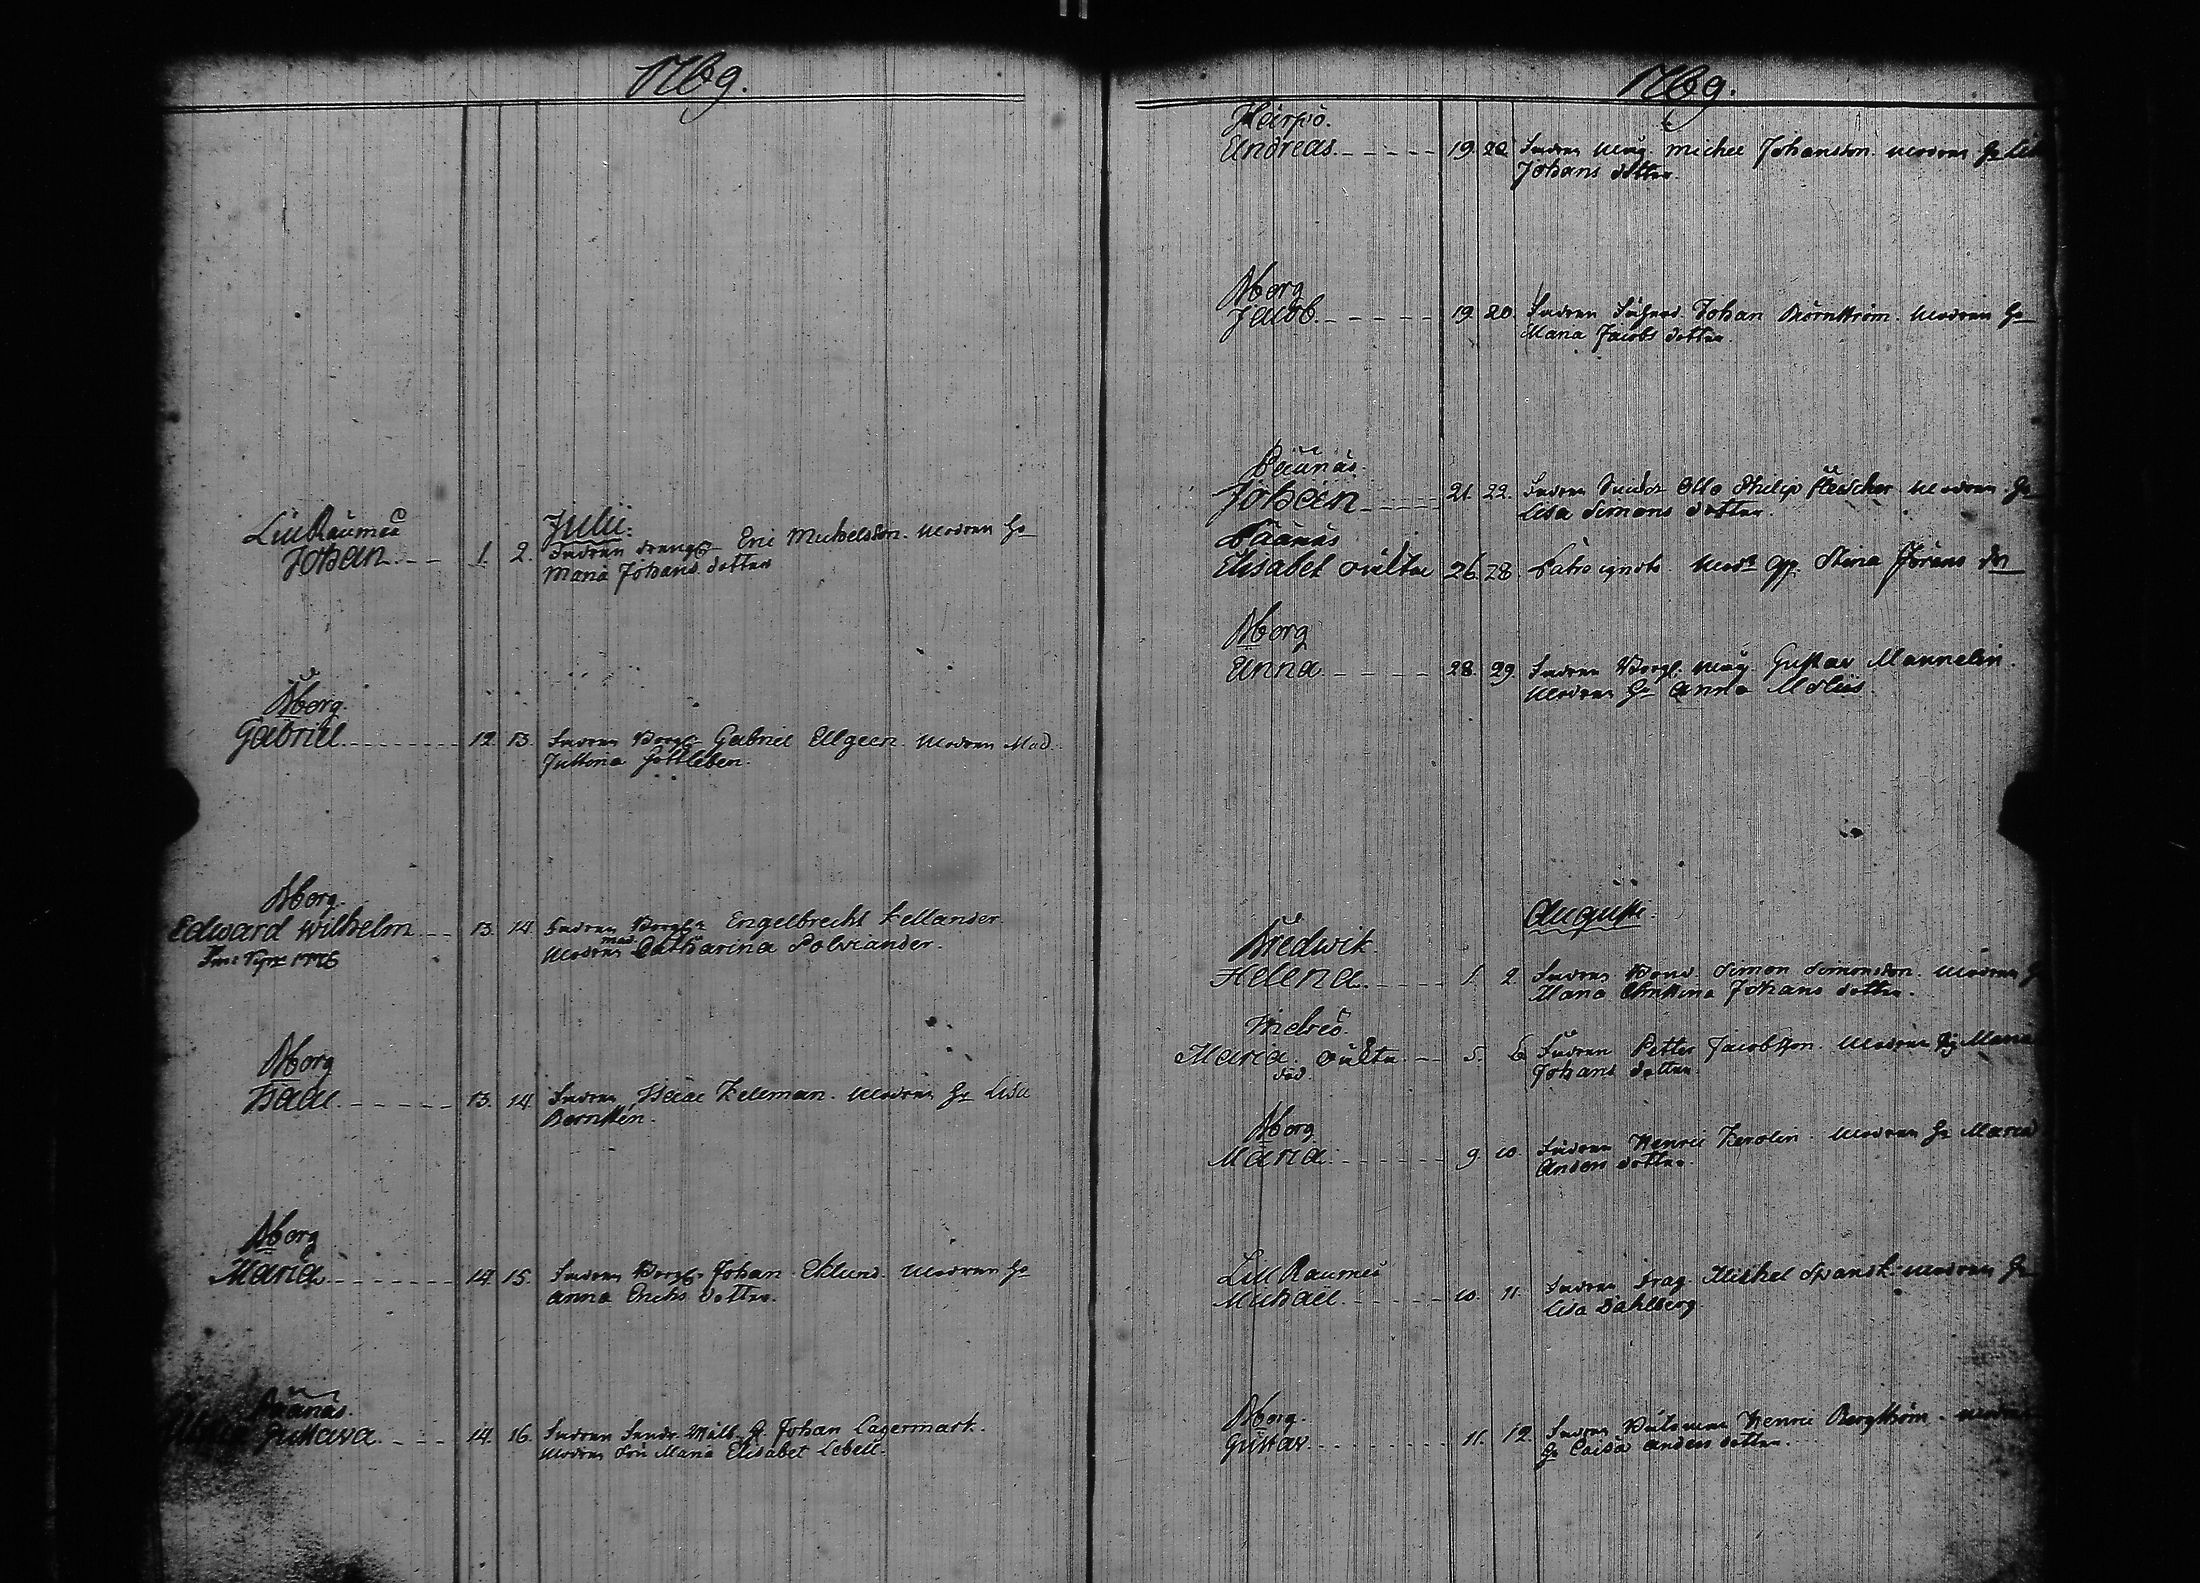 1769.
Lill Raumeå
Julii.
Johan 1. 2. Fadren Eric Michelsson. Modren H:
Maria Johans dotter
Nborg.
Gabriel 12. 13. Fadren Borg: Gabriel Ellgeen. Modren Mad.
Justina Gottleben.
Nborg.
Edward Wilhelm 13. 14. Fadren Borg: Engelbrecht Zellander
Modren mad. Catharina Polviander.
Nborg
Isaac 13. 14. Fadren Isaac Zeleman. Modren H: Lisa
Bernsten.
Nborg
Maria 14. 15. Fadren Borg: Johan Eklund. Modren H:
Anna Erichs dotter.
Påånäs.
Gustava 14. 16. Fadren Johan Lagermark.
Modren Fru Maria Elisabet Lebell.
1769.
Andreas 19. 20. Fadren Michel Johansson. Modren H:
Johans dotter.
Nborg
Jacob 19. 20. Fadren Johan Björnström. Modren H:
Maria Jacobs dotter.
Påånäs.
Johan 21. 22. Fadren Otto Philip Fleischer Modren H:
Lisa Simons dotter.
Påånäs
Elisabet oäkta 26. 28. Patre ignoto. Stina Jörans dr
Nborg
Anna 28. 29. Fadren Borg: Gustav Mannelin.
Modren H: Anna
Augusti.
Bredwik.
Helena 1. 2. Fadren Bond. Simon Simonsson. Modren
Maria Christina Johans dotter.
Maria. oäkta 5. 6 Fadren Petter Jacobsson. Modren Maria
död. Johans dotter.
Nborg
Maria 9. 10. Fadren Henric Zerolin. Modren H: Maria
Anders dotter.
Lill Raumeå
Michael 10. 11. Fadren Drag. Michel Spansk. Modren H:
Lisa Dahlberg
Nborg.
Gustav 11. 12. Fadren Henric Bergström. Modren
H: Caisa Anders dotter.